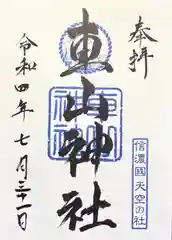 奉拝
東山神社
信濃國 天空の社
令和四年七月三十一日